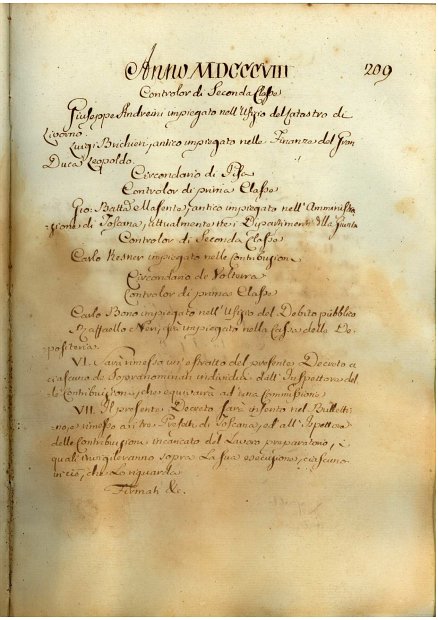 Anno MDCCCVIII 209
Controlor di Seconda Classe
Giuseppe Andreini impiegato nell'Ufizio del Catastro di
Livorno.
Luigi Brichieri, antico impiegato nelle Finanze del Gran
Duca Leopoldo.
Circondario di Pisa
Controlor di prima Classe
Gio: Batta antico impiegato nell'Amministra-
zione di Toscana, attualmente i Dipartimenti della Giunta
Controlor di Seconda Classe
Carlo impiegato nelle Contribuzioni
Circondario de Volterra
Controlor di prima Classe
Carlo Bono impiegato nell'Ufizio del Debito pubblico
Raffaello Neri, già impiegato nella Cassa della De-
positeria.
VI. Sarà rimesso un estratto del presente Decreto a
ciascuno de Sopranominati individui dall'Inspettore del-
le Contribuzioni, che equivarrà ad una Commissione
VII. Il presente Decreto sarà inserito nel Bulletti-
no, e rimesso ai tre Prefetti di Toscana, ed all'Ispettore
delle Contribuzioni incaricato del Lavoro preparatorio, i
quali invigileranno sopra la sua esecuzione, ciascuno
in ciò, che lo riguarda
Firmati &c.